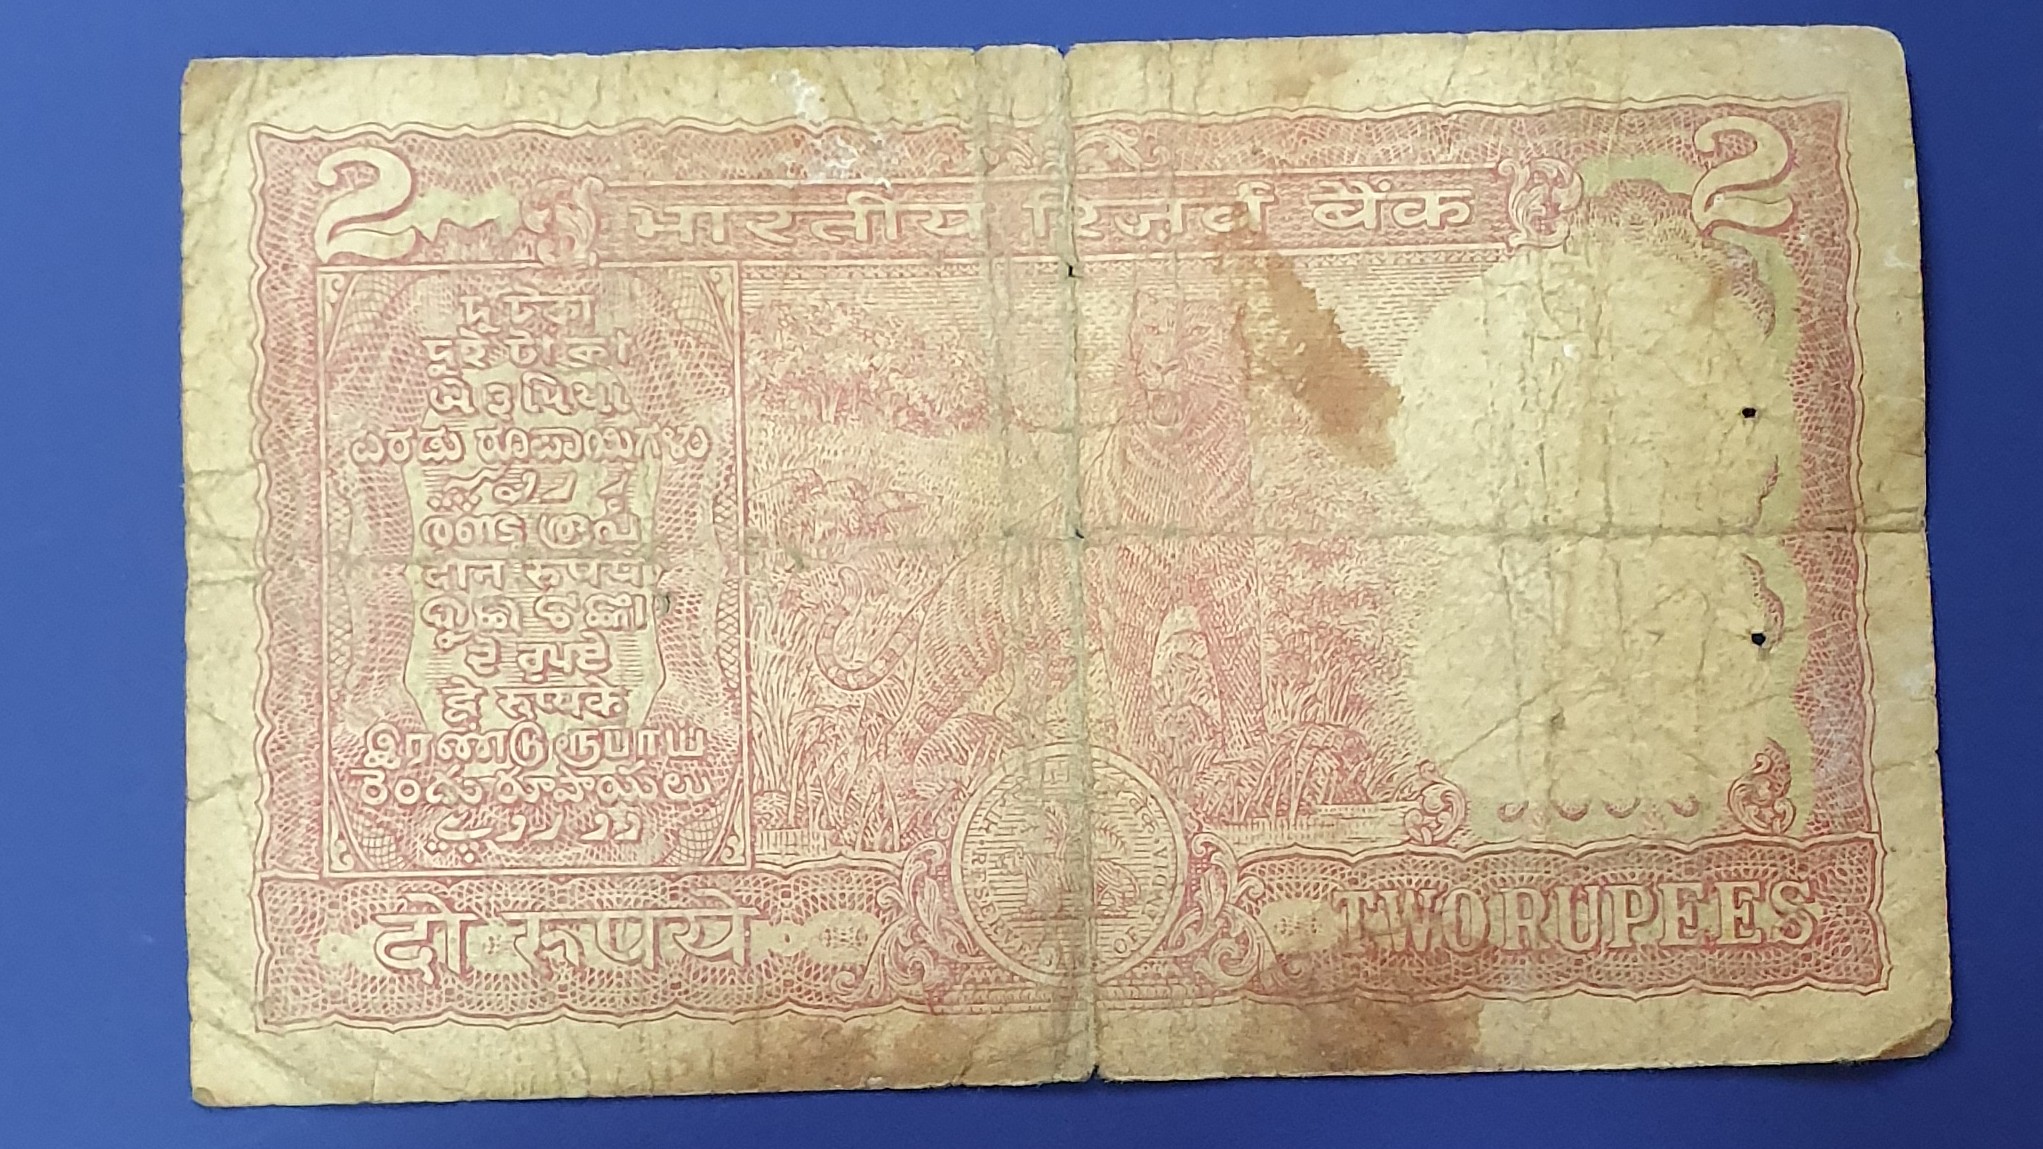 2 भारतीय रिज़र्व बैंक 2
দু টকা
দুই টাকা
બે રૂપિયા
ಎರಡು ರೂಪಾಯಿಗಳು
രണ്ടു രൂപ
दोन रुपये
ଦୁଇ ଟଙ୍କା
੨ ਰੁਪਏ
द्वे रूप्यके
இரண்டு ரூபாய்
రెండు రూపాయలు
دو روپیے
दो रुपये
TWO RUPEES